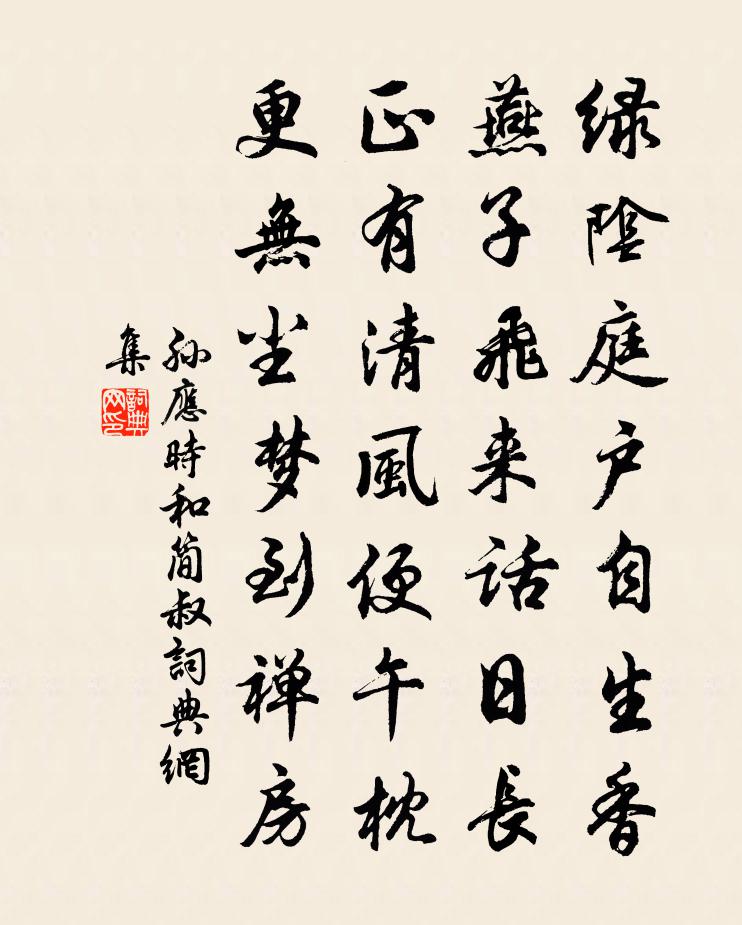 绿陰庭户自生香
燕子飛来话日長
正有清風便午枕
更無尘梦到禅房
孙應時和简叔詞典網
集
詞典
网印